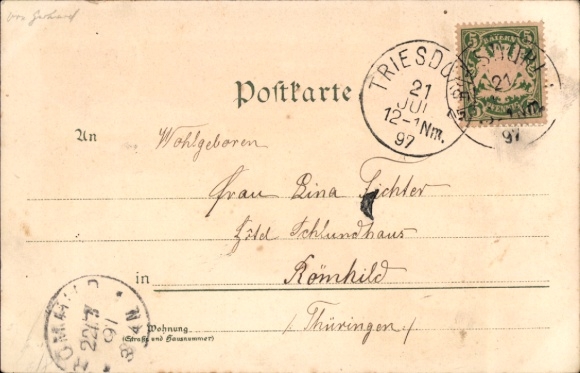 5 BAYERN 5
TRIESDORF
21
JUL
12-1Nm.
97
21
97
Postkarte
An
Wohlgeboren
Frau Lina Fichter
Hôtel Schlundhaus
in
Römhild
Wohnung
(Straße und Hausnummer)
/ Thüringen /
RÖMHILD
22/7
97
8-9 N